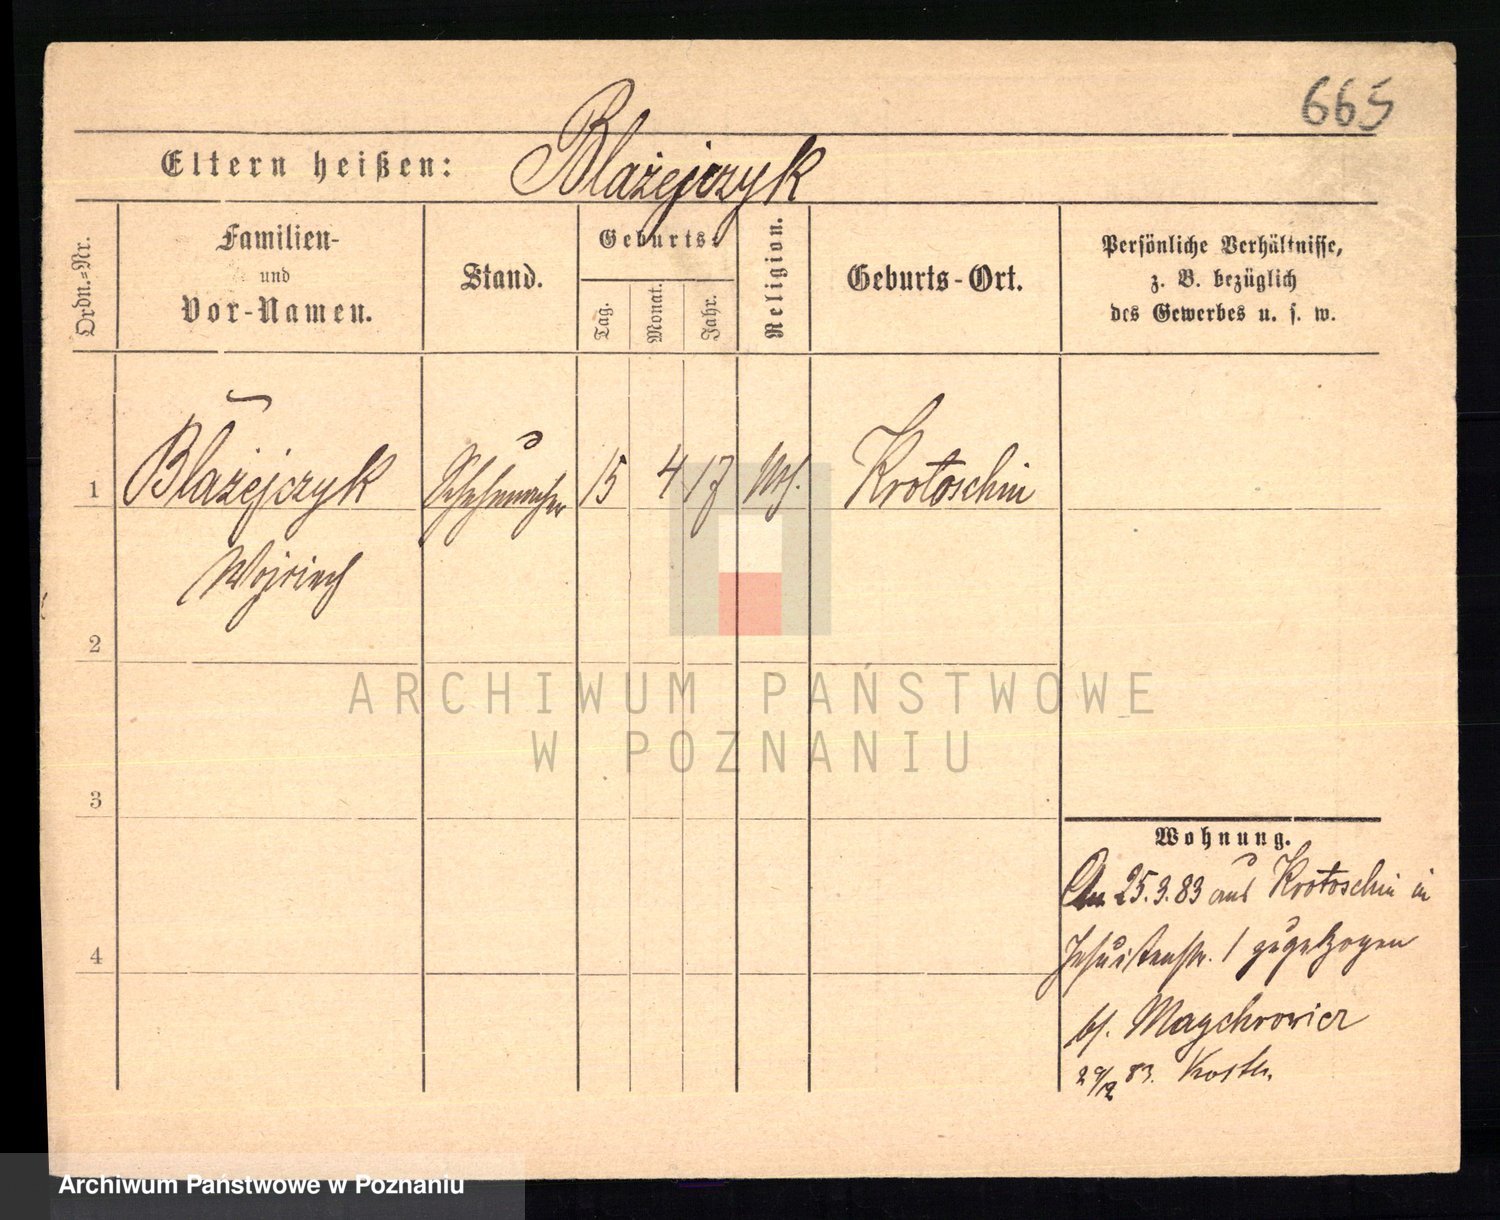 665
Eltern heißen: Blażejczyk
Ordn.-Nr.
Familien-
und
Vor-Namen.
Stand.
Geburts-
Tag.
Monat.
Jahr.
Religion.
Geburts-Ort.
Persönliche Verhältnisse,
z. B. bezüglich
des Gewerbes u. s. w.
1 Błażejczyk Schuhmacher 15 4 17 Krotoschin
Wojciech
2
3
4
Wohnung.
An 25.3.83 aus Krotoschin in
Jesuitenstr. 1 zugezogen
bj. Maychrowicz
29/12 83.
ARCHIWUM PAŃSTWOWE
W POZNANIU
Archiwum Państwowe w Poznaniu